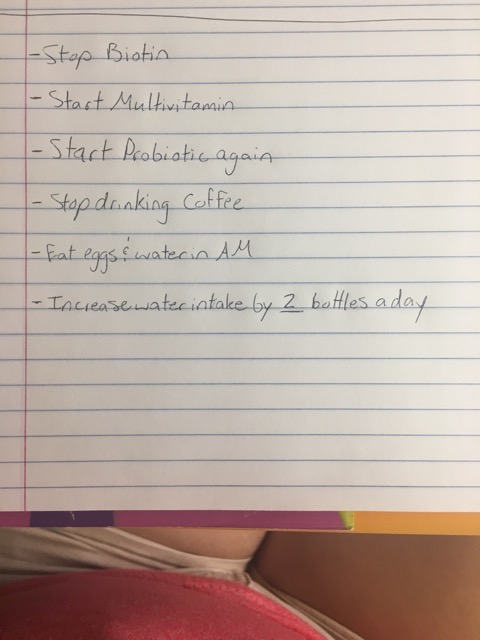 - Stop Biotin
- Start Multivitamin
- Start Probiotic again
- Stop drinking Coffee
- Eat eggs & water in AM
- Increase water intake by 2 bottles a day